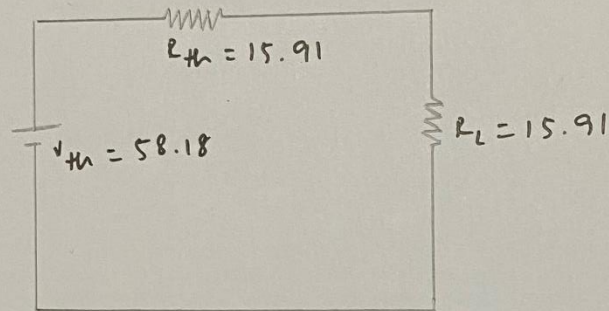 Rth = 15.91
Vth = 58.18
RL = 15.91